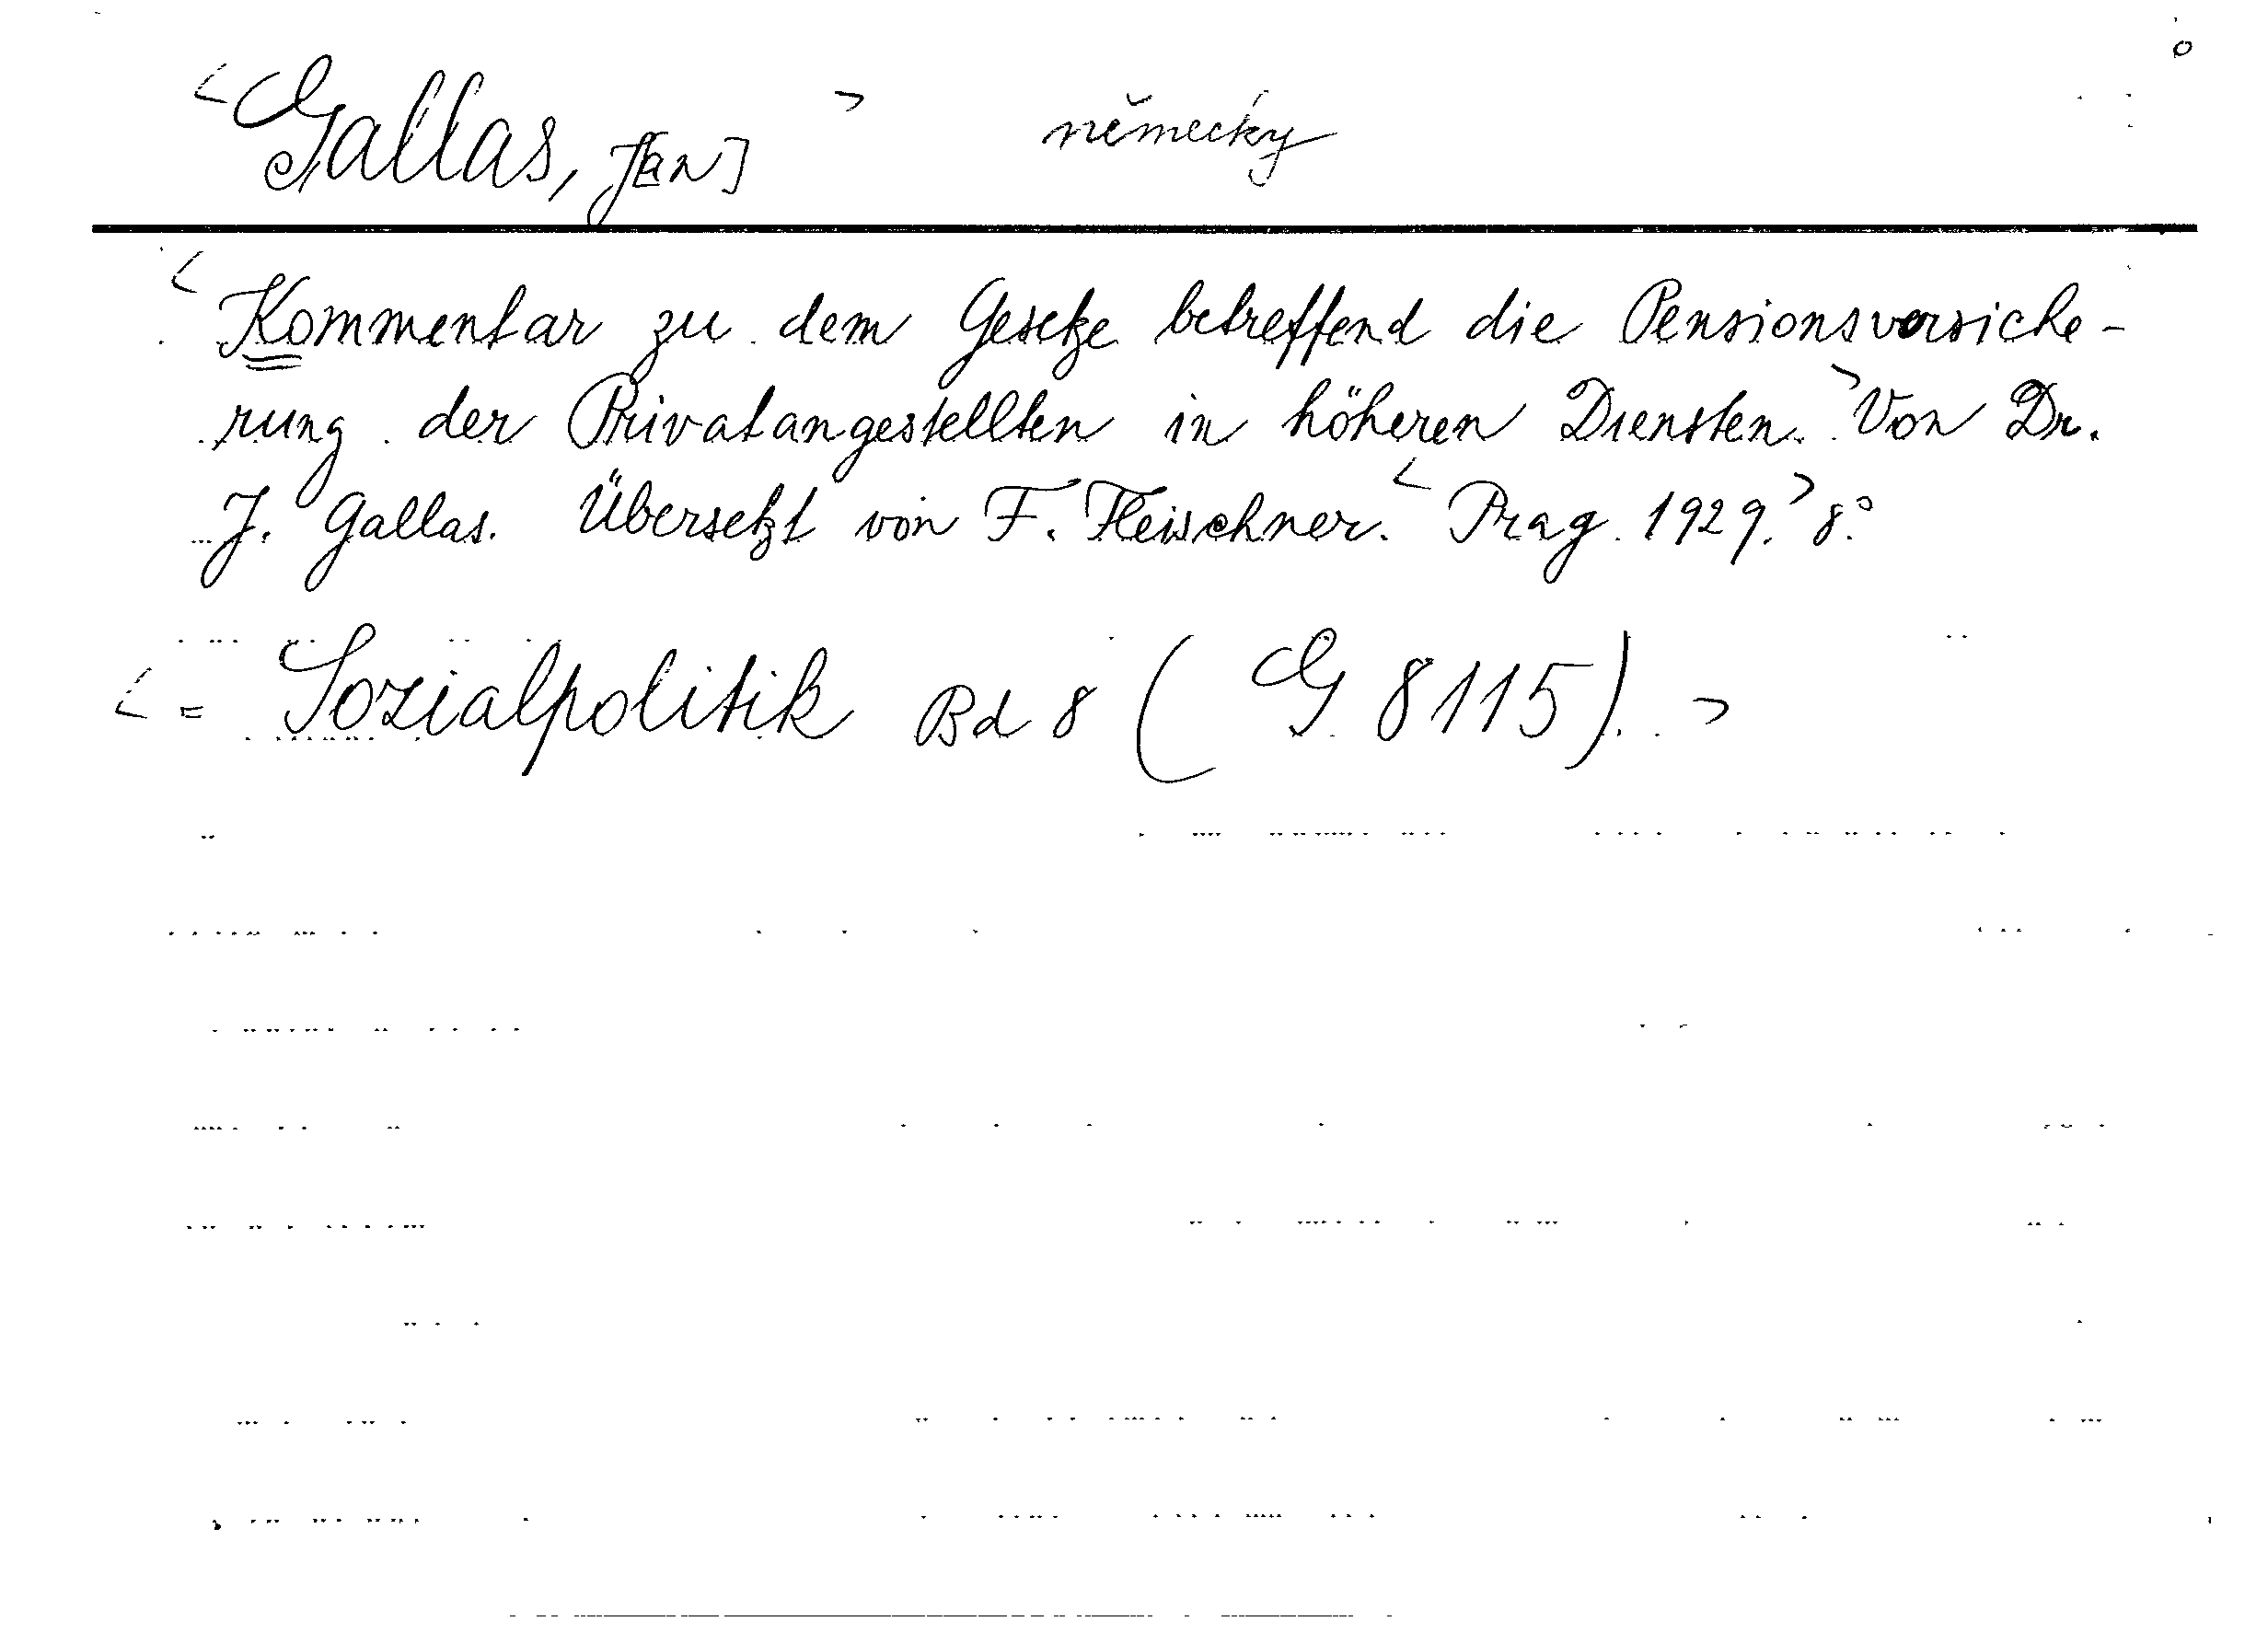 <Gallas, J[an]> německy
<Kommentar zu dem Gesetze betreffend die Pensionsversiche-
rung der Privatangestellten in höheren Diensten.> Von Dr.
J. Gallas. Übersetzt von F. Fleischner. <Prag. 1929.> 8°.
<= Sozialpolitik Bd 8 (G 8115).>